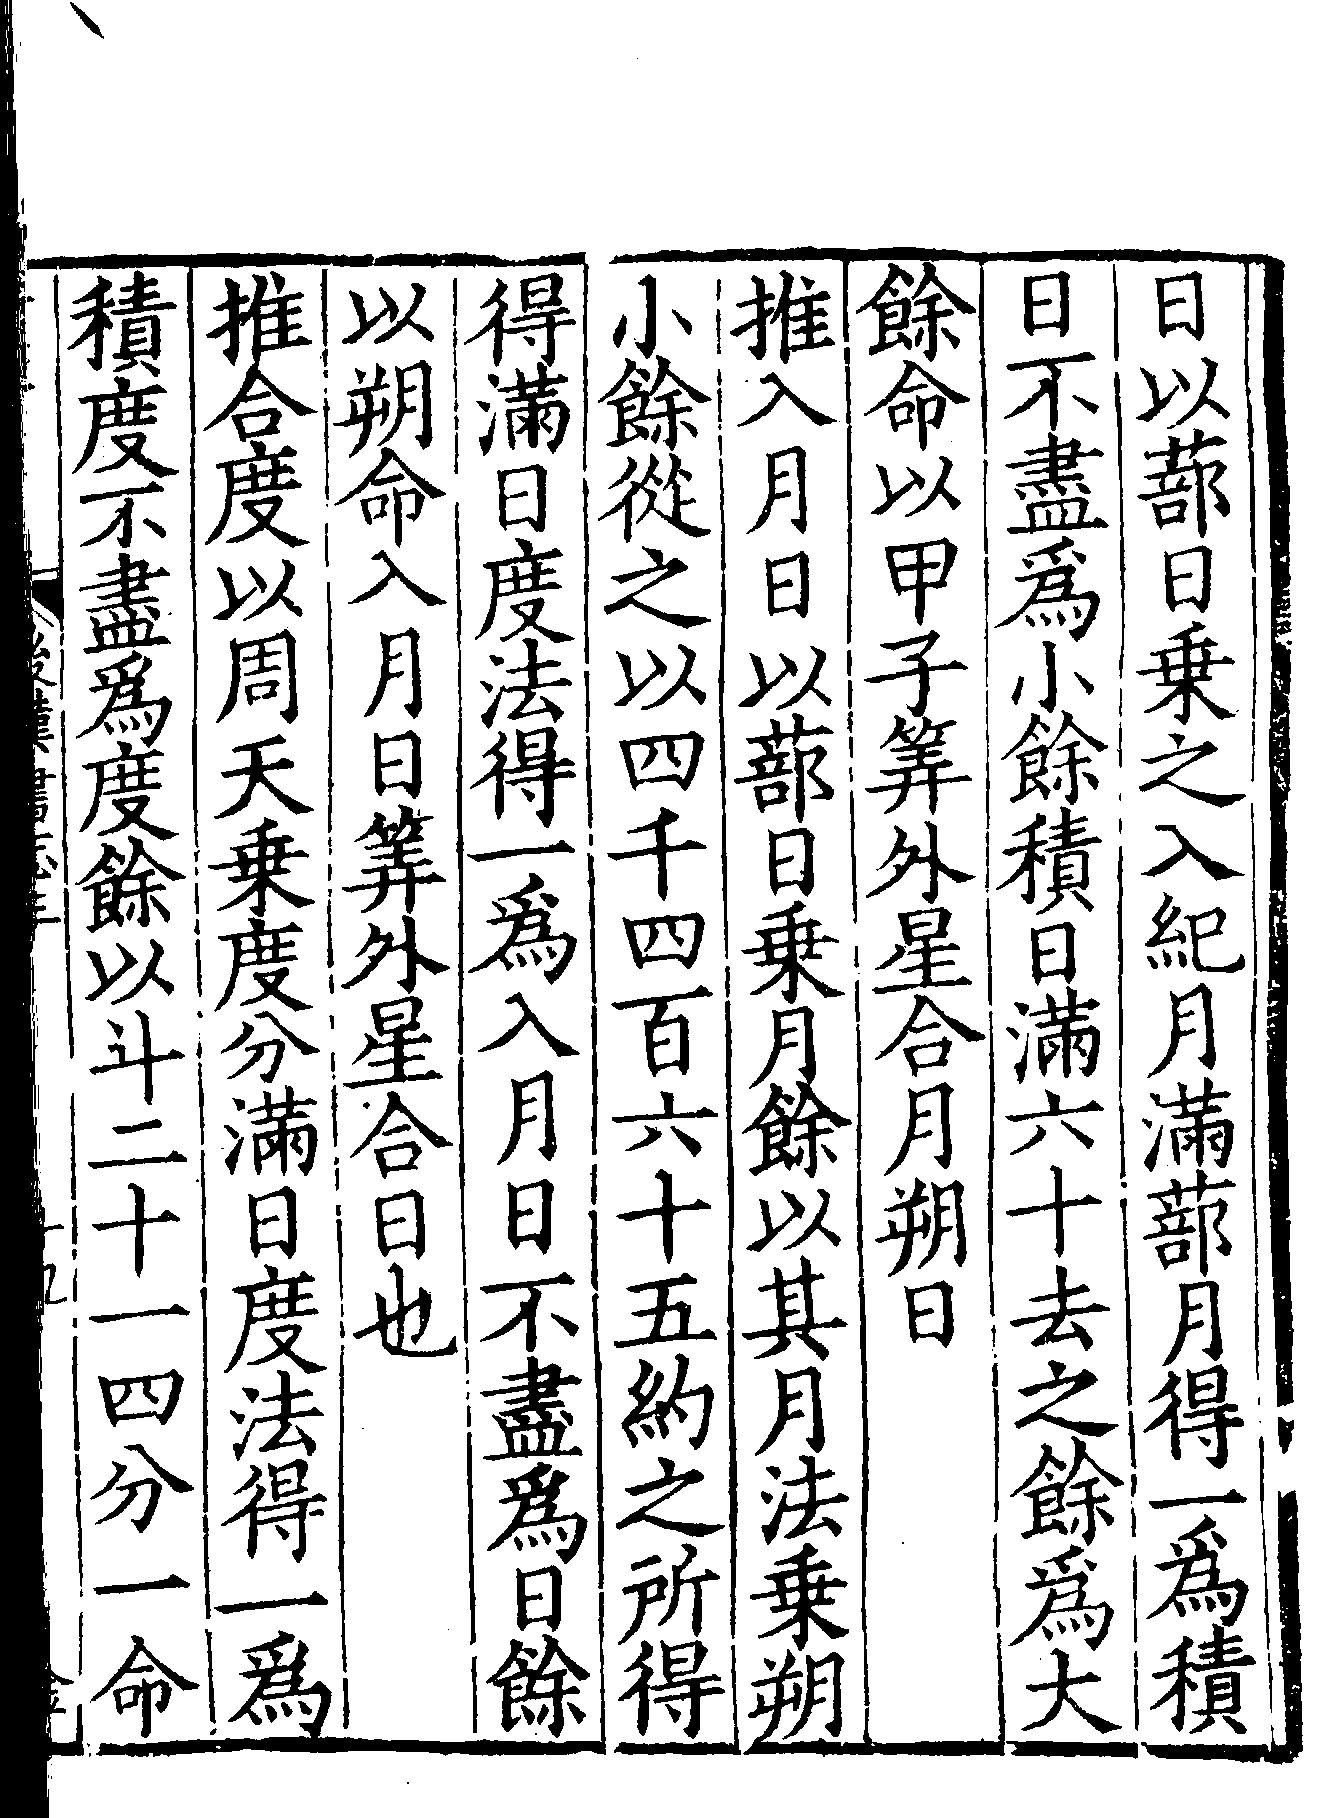 日以蔀日乗之入紀月滿蔀月得一爲積
日不盡爲小餘積日滿六十去之餘爲大
餘命以甲子筭外星合月朔日
推入月日以蔀日乗月餘以其月法乗朔
小餘從之以四千四百六十五約之所得
得滿日度法得一爲入月日不盡爲日餘
以朔命入月日筭外星合日也
推合度以周天乗度分滿日度法得一爲
積度不盡爲度餘以斗二十一四分一命